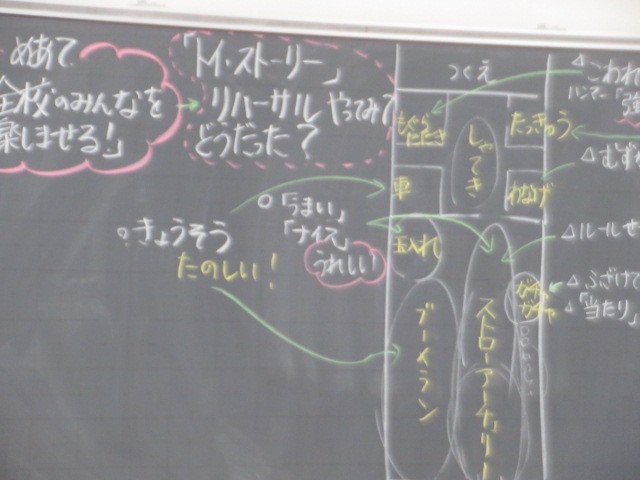 めあて
全校のみんなを
楽しませる!」
「トイ・ストーリー」
リハーサルやってみて
どうだった?
つくえ
もぐら
たたき
しゃてき
たっきゅう
車
わなげ
玉入れ
ガチャ
ガチャ
ブーメラン
ストローアーチェリー
○きょうそう
たのしい!
○「うまい」
「ナイス」
うれしい
△こわれ
ハンマー
△むず
△ルールせ
△ふざけて
△「当たり」